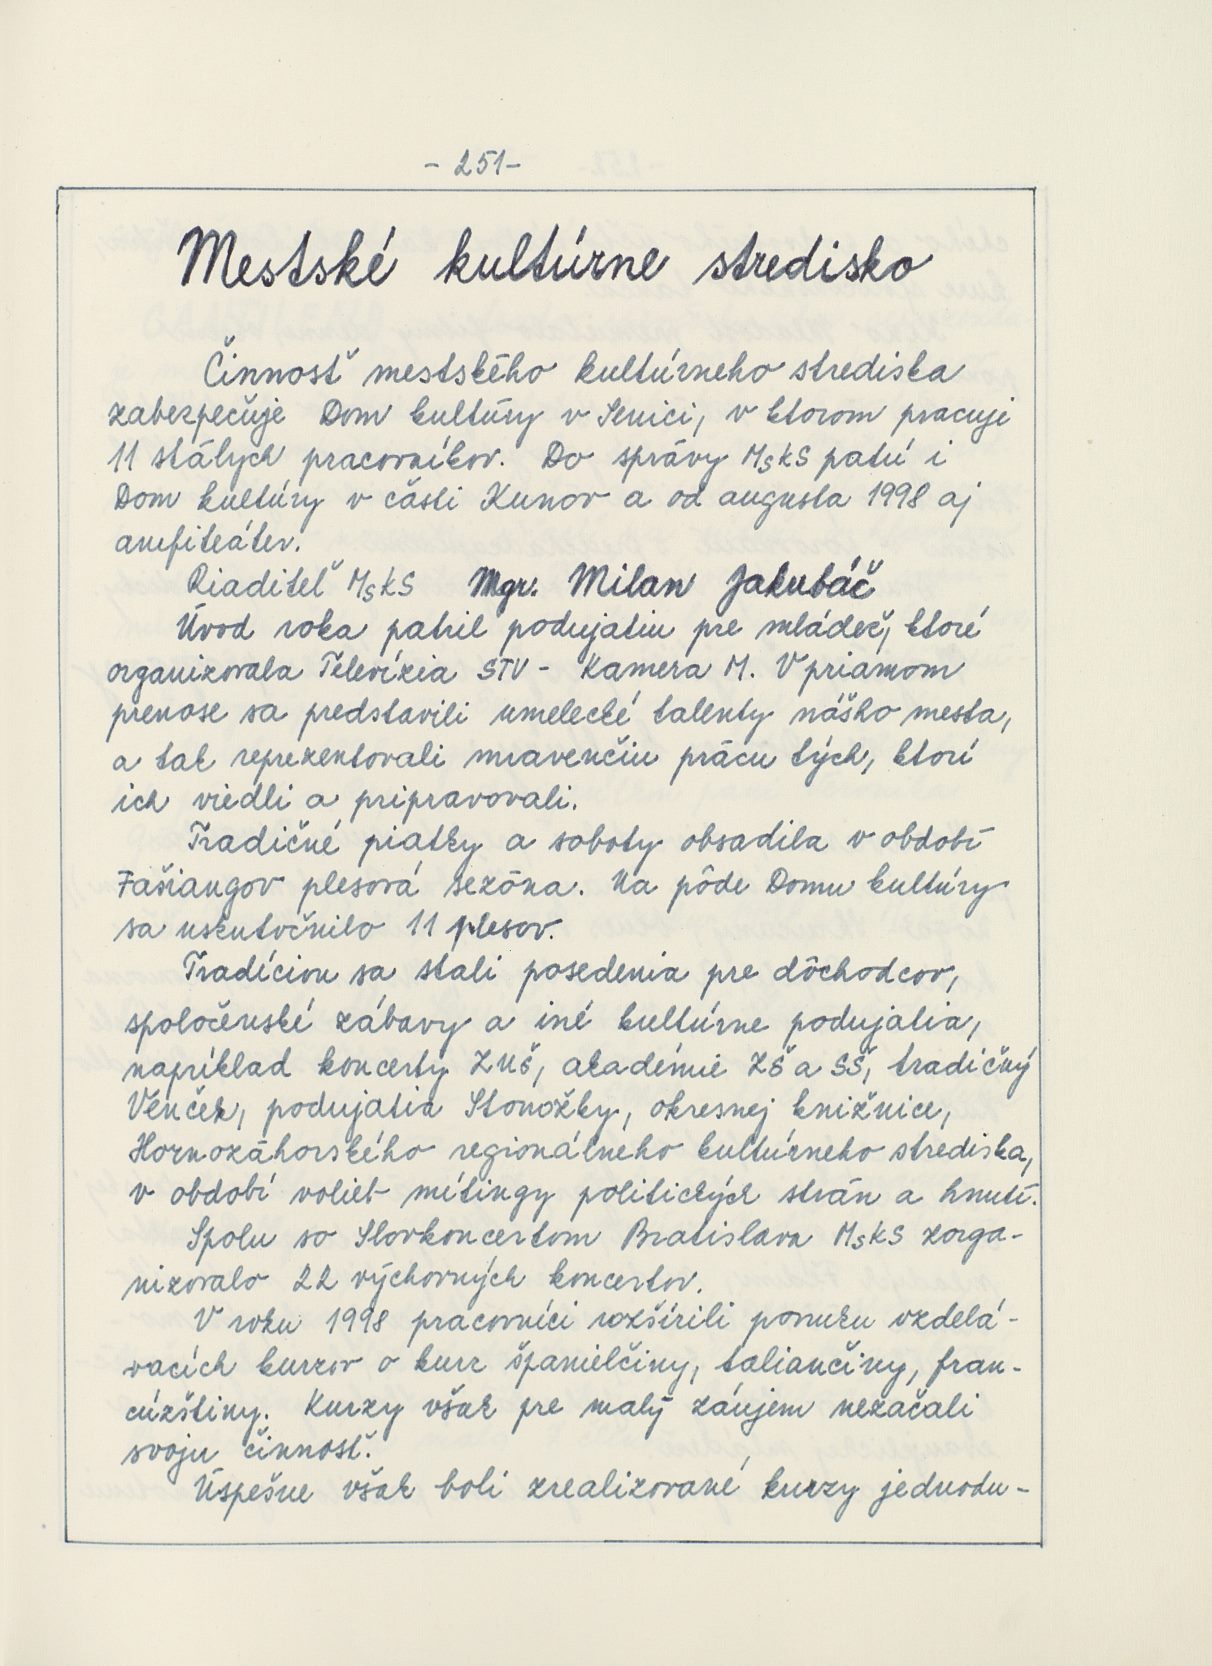 - 251 -
Mestské kultúrne stredisko
Činnosť mestského kultúrneho strediska
zabezpečuje Dom kultúry v Senici, v ktorom pracuje
11 stálych pracovníkov. Do správy MsKS patrí i
Dom kultúry v časti Kunov a od augusta 1998 aj
amfiteáter.
Riaditeľ MsKS Mgr. Milan Jakubáč
Úvod roka patril podujatiu pre mládež, ktoré
organizovala Televízia STV - Kamera M. V priamom
prenose sa predstavili umelecké talenty nášho mesta,
a tak reprezentovali mravenčiu prácu tých, ktorí
ich viedli a pripravovali.
Tradičné piatky a soboty obsadila v období
Fašiangov plesová sezóna. Na pôde Domu kultúry
sa uskutočnilo 11 plesov.
Tradíciou sa stali posedenia pre dôchodcov,
spoločenské zábavy a iné kultúrne podujatia,
napríklad koncerty ZUŠ, akadémie ZŠ a SŠ, tradičný
Venček, podujatia Stonožky, okresnej knižnice,
Hornozáhorského regionálneho kultúrneho strediska,
v období volieb mítingy politických strán a hnutí.
Spolu so Slovkoncertom Bratislava MsKS zorga-
nizovalo 22 výchovných koncertov.
V roku 1998 pracovníci rozšírili ponuku vzdelá-
vacích kurzov o kurz španielčiny, taliančiny, fran-
cúzštiny. Kurzy však pre malý záujem nezačali
svoju činnosť.
Úspešne však boli zrealizované kurzy jednodu-